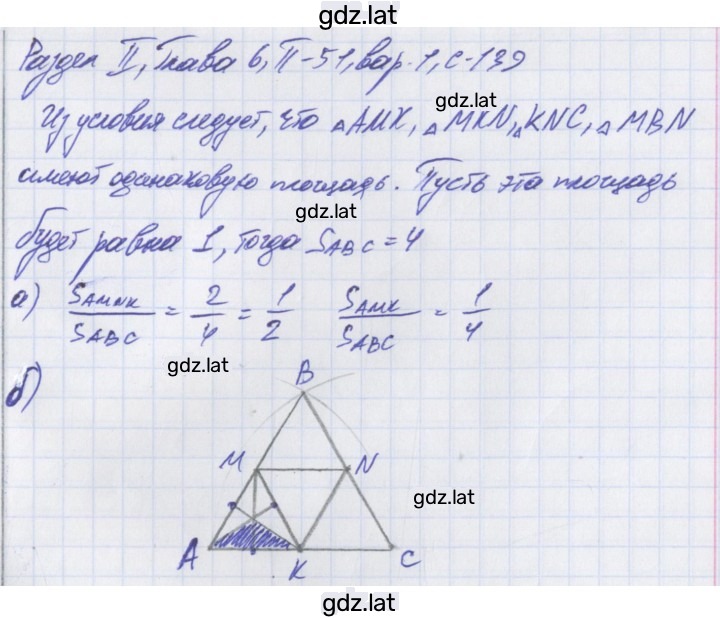 gdz.lat
Раздел II, Глава 6, П-51, вар. 1, с-139
gdz.lat
Из условия следует, что △AMK, △MKN, △KNC, △MBN
имеют одинаковую площадь. Пусть эта площадь
gdz.lat
будет равна 1, тогда S_ABC = 4
а) S_AMNK/S_ABC = 2/4 = 1/2 S_AMK/S_ABC = 1/4
gdz.lat
б)
B
M N
gdz.lat
A K C
gdz.lat